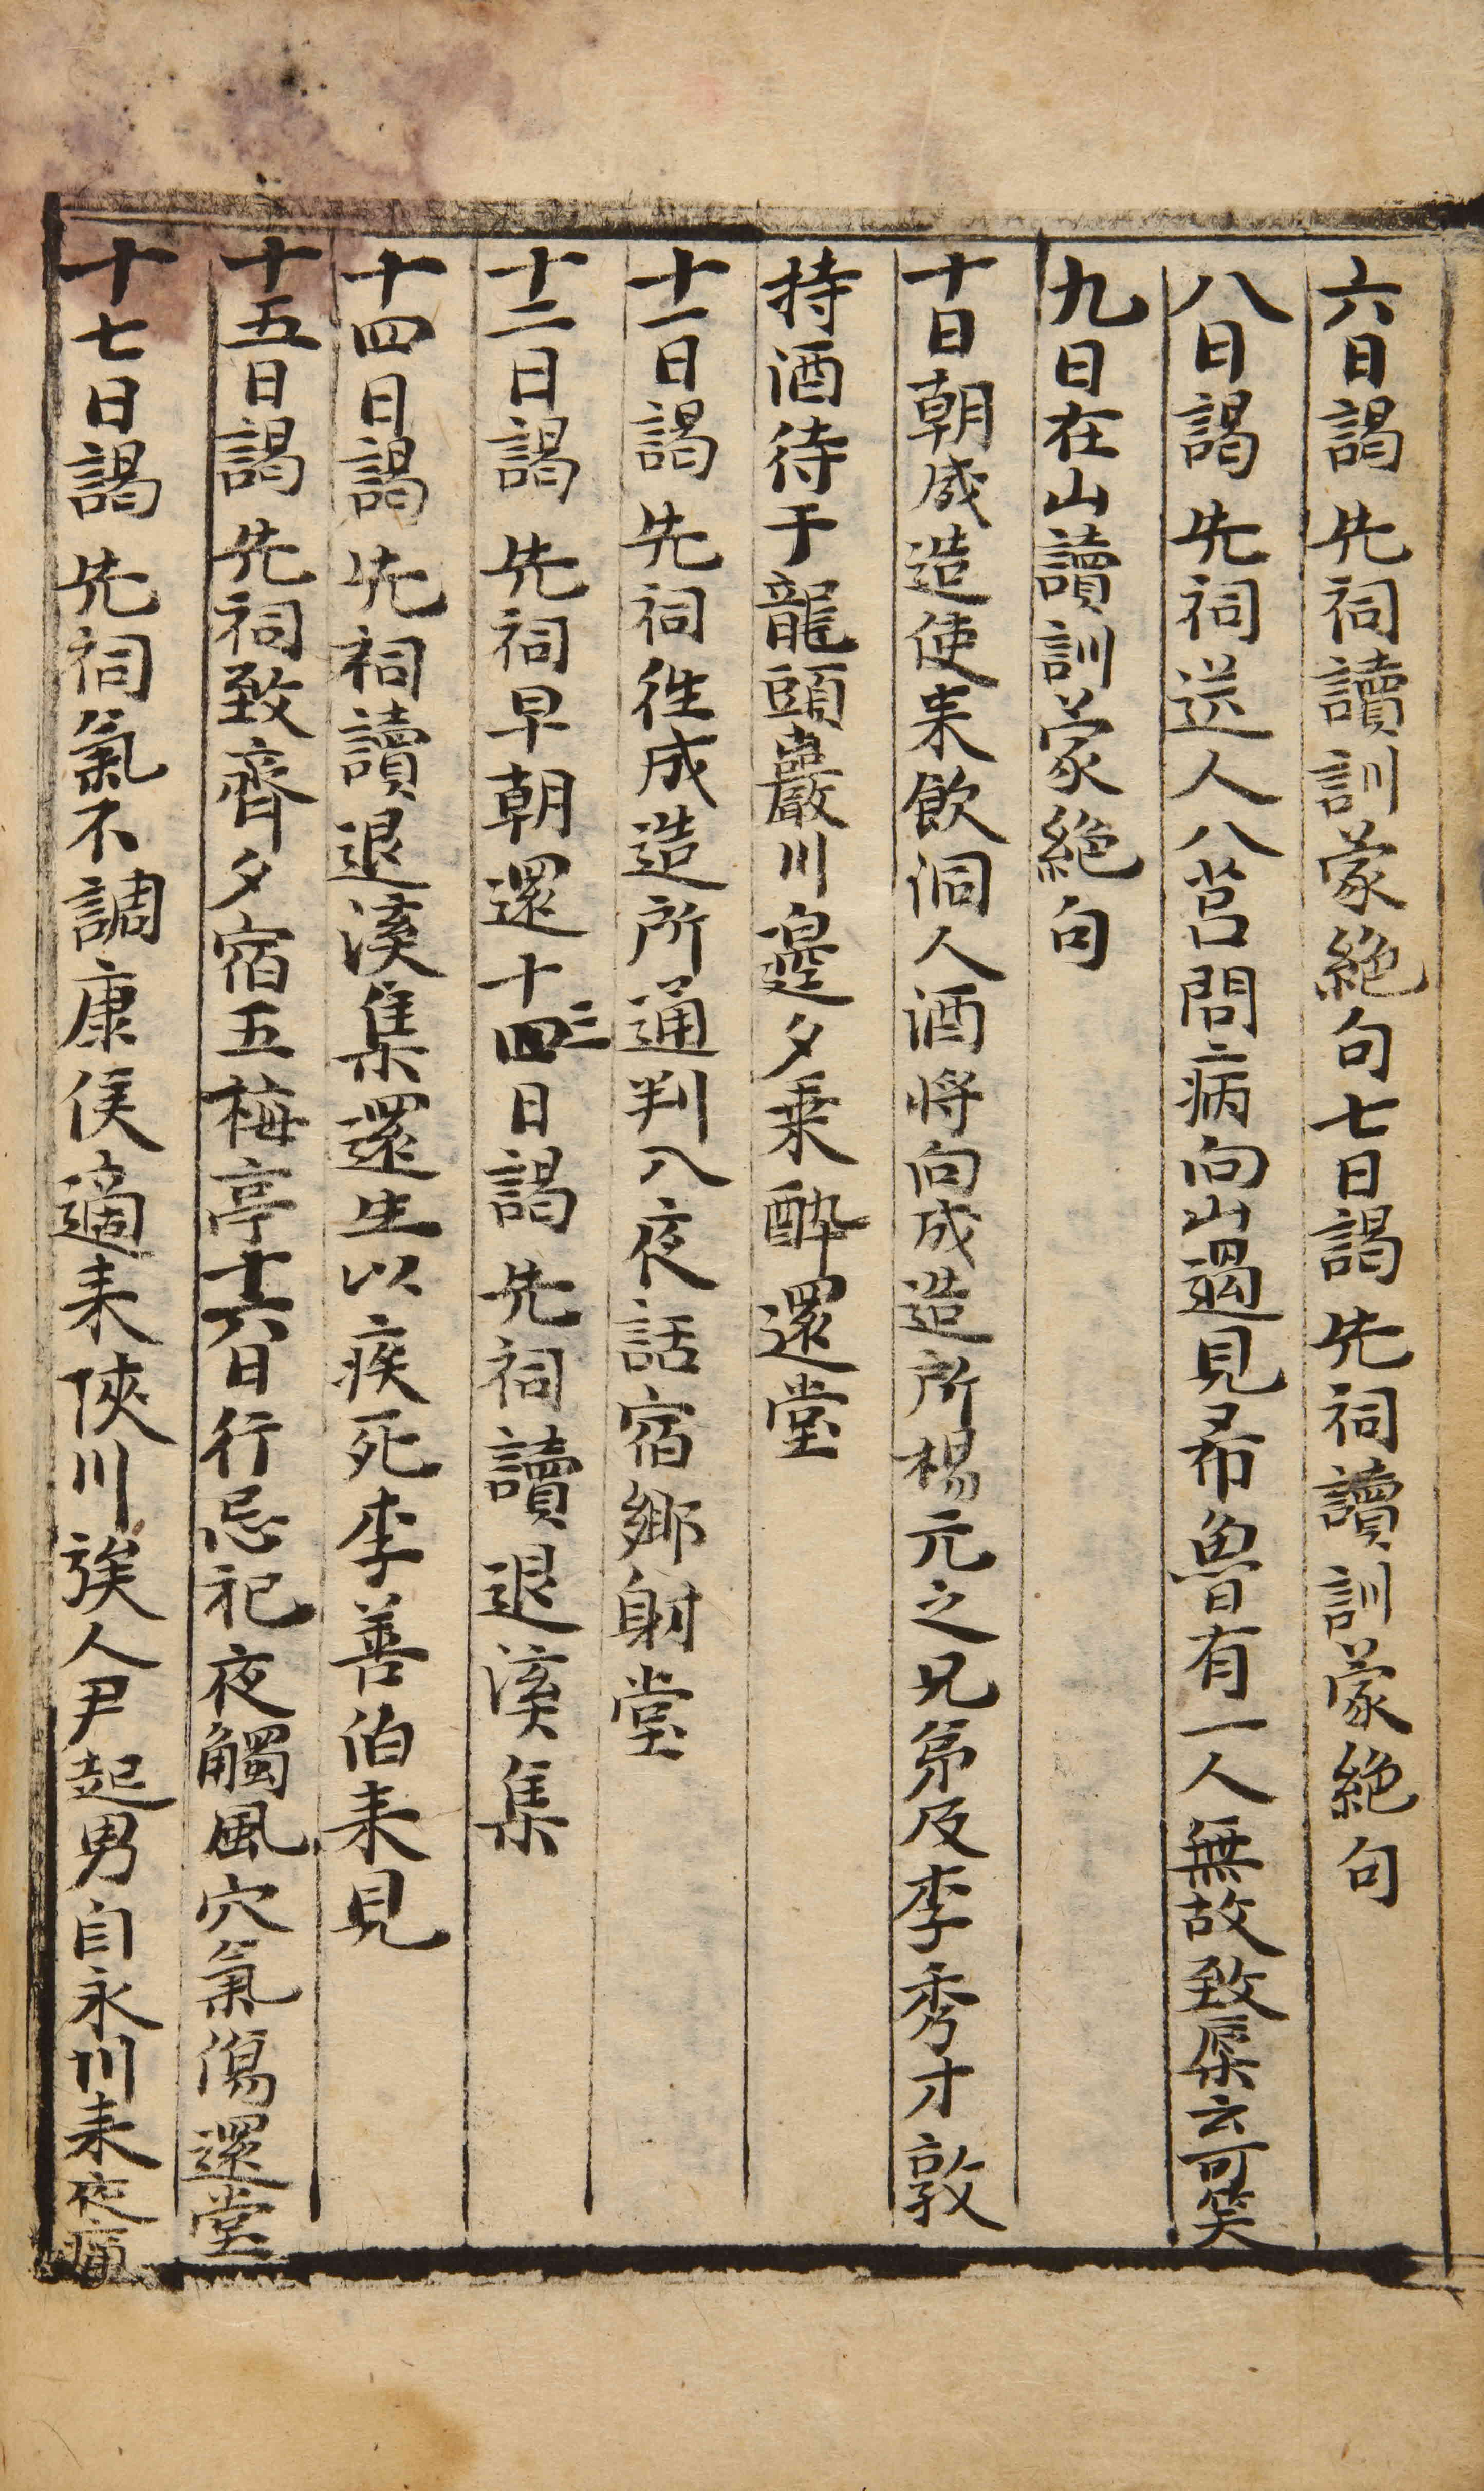 六日謁 先祠讀訓蒙絶句七日謁 先祠讀訓蒙絶句
八日謁 先祠送人八莒問病向山遏見希魯有一人無故致辱云可笑
九日在山讀訓蒙絶句
十日朝成造使来飲洞人酒将向成造所楊元之兄弟及李秀才敦
持酒待于龍頭巖川邉夕乗酔還堂
十一日謁 先祠徃成造所通判入夜話宿鄉射堂
十二日謁 先祠早朝還十三日謁 先祠讀退溪集
十四日謁 先祠讀退溪集還生以疾死李善伯来見
十五日謁 先祠致齊夕宿五梅亭十六日行忌祀夜觸風穴氣傷還堂
十七日謁 先祠氣不調康侯適来陜川族人尹起男自永川来夜痛